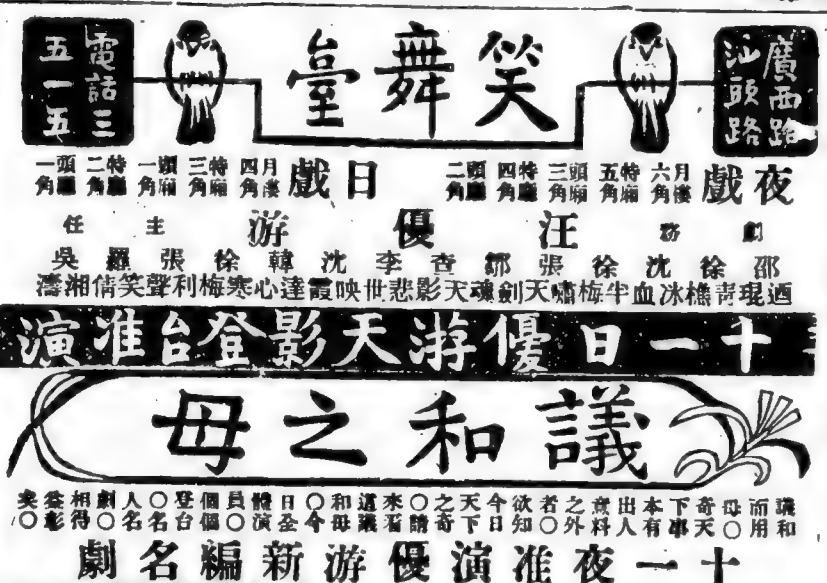 廣西路
汕頭路
笑舞臺
電話三
五一五
夜戲 月樓六角 特廂五角 頭廂三角 特廳四角 頭廳二角 日戲 月樓四角 特廂三角 頭廂一角 特廳二角 頭廳一角
劇務 汪優游 主任
邵迺琨 徐青樵 沈冰血 徐半梅 張嘯天 鄒劍魂 查天影 李悲世 沈映霞 韓達心 徐寒梅 張利聲 羅笑倩 吳湘濤
十一日優游天影登台准演
議和之母
議和而用母○奇天下事本有出人意料之外者○欲知今日天下之奇○請來看這議和母○今日全體演員○個個登台○名人名劇○相得益彰矣○
十一夜准演優游新編名劇